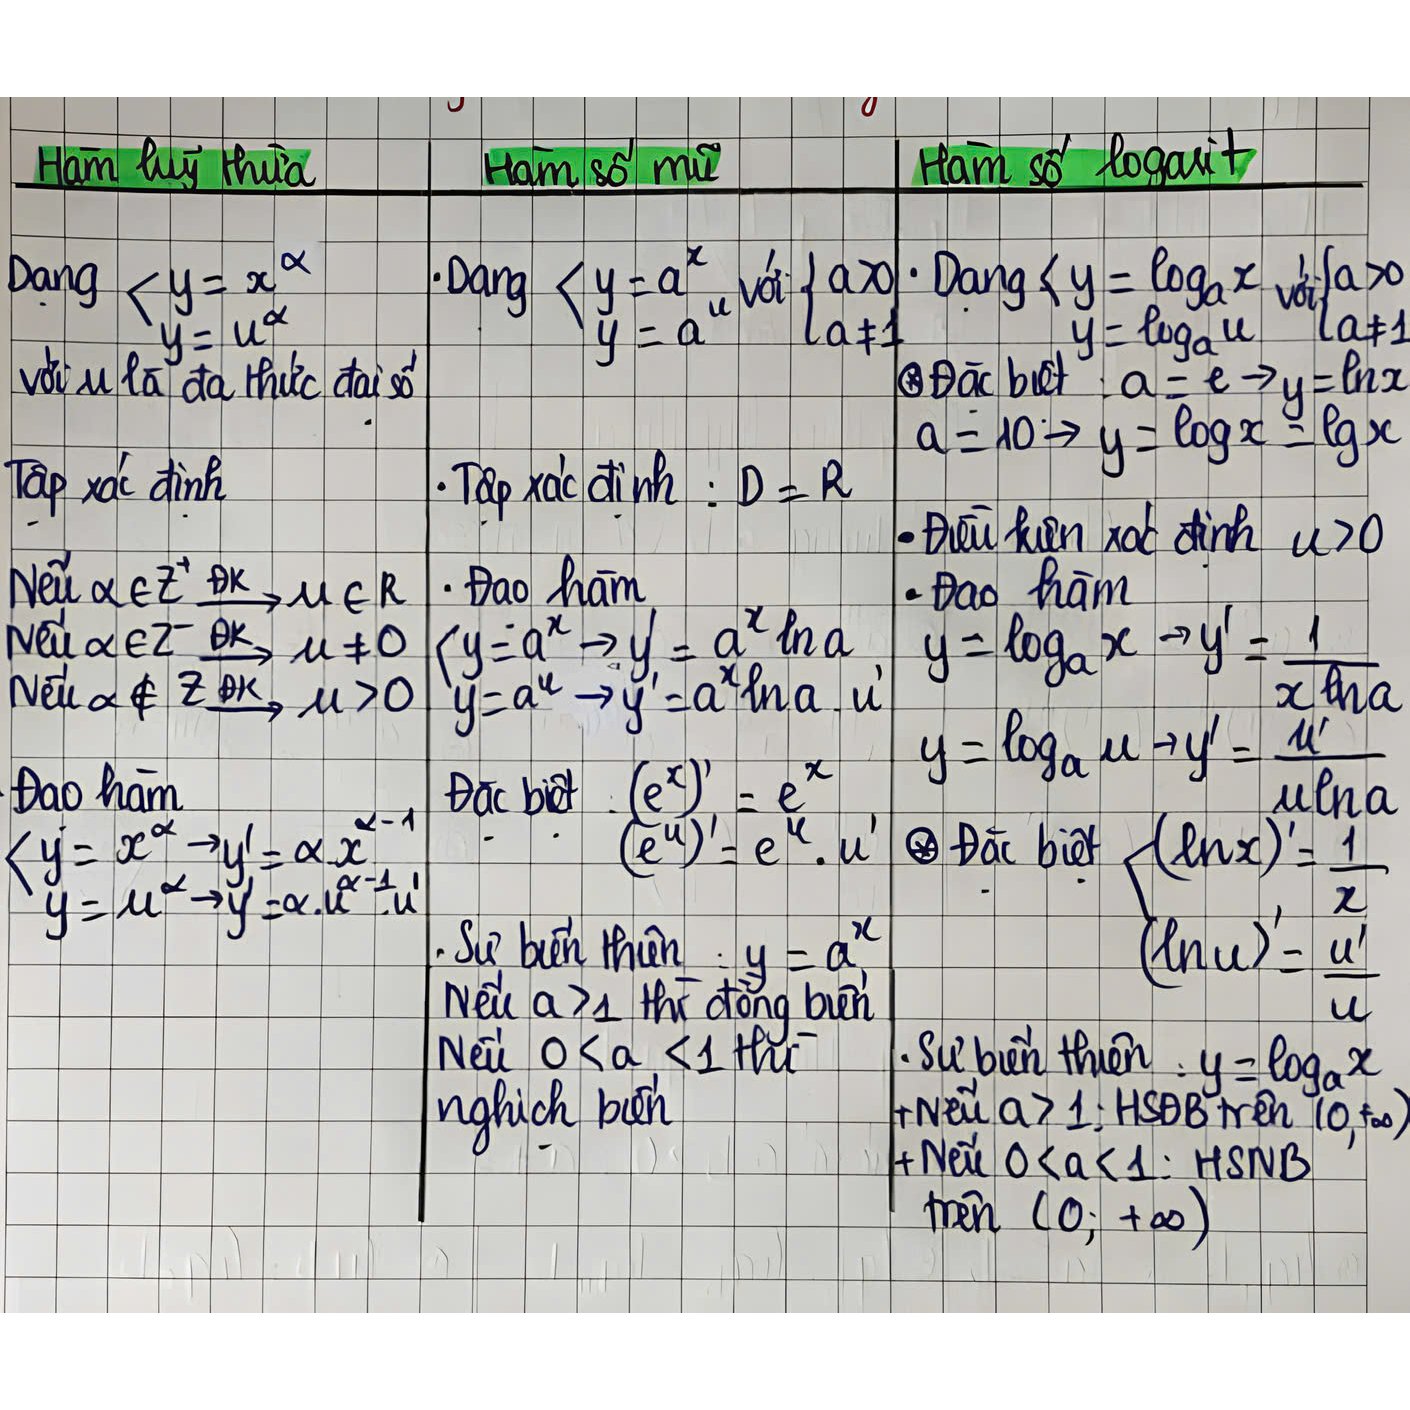 Hàm luỹ thừa
Dạng y = x^α
y = u^α
với u là đa thức đại số
Tập xác định
Nếu α ∈ Z⁺ ĐK → u ∈ R
Nếu α ∈ Z⁻ ĐK → u ≠ 0
Nếu α ∉ Z ĐK → u > 0
Đạo hàm
y = x^α → y' = α.x^(α-1)
y = u^α → y' = α.u^(α-1).u'
Hàm số mũ
· Dạng y = a^x với { a>0
y = a^u { a≠1
· Tập xác định : D = R
· Đạo hàm
y = a^x → y' = a^x ln a
y = a^u → y' = a^x ln a . u'
Đặc biệt : (e^x)' = e^x
(e^u)' = e^u . u'
· Sự biến thiên : y = a^x
Nếu a > 1 thì đồng biến
Nếu 0 < a < 1 thì
nghịch biến
Hàm số logarit
· Dạng y = log_a x với { a>0
y = log_a u { a≠1
⊛ Đặc biệt : a = e → y = lnx
a = 10 → y = logx = lgx
• Điều kiện xác định u > 0
• Đạo hàm
y = log_a x → y' = 1/(x ln a)
y = log_a u → y' = u'/(u ln a)
⊛ Đặc biệt (lnx)' = 1/x
(lnu)' = u'/u
· Sự biến thiên : y = log_a x
+ Nếu a > 1 : HSĐB trên (0, +∞)
+ Nếu 0 < a < 1 : HSNB
trên (0; +∞)